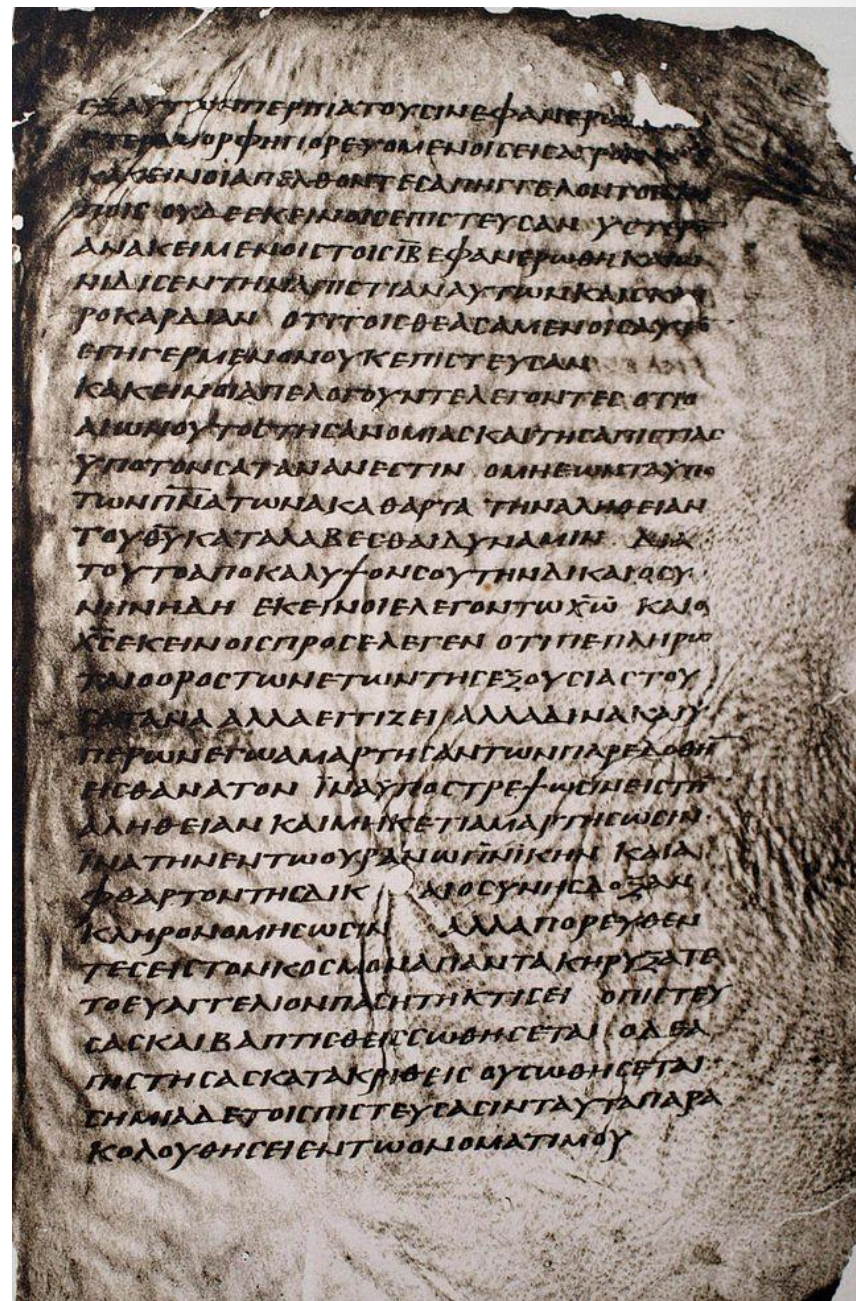 ΕΞΑΥΤΩΝΠΕΡΙΠΑΤΟΥΣΙΝΕΦΑΝΕΡΩ
ΕΤΕΡΑΜΟΡΦΗΠΟΡΕΥΟΜΕΝΟΙΣΕΙΣΑΓΡΟΝ
ΚΑΚΕΙΝΟΙΑΠΕΛΘΟΝΤΕΣΑΠΗΓΓΕΛΟΝΤΟΙΣ
ΠΟΙΣ ΟΥΔΕΕΚΕΙΝΟΙΣΕΠΙΣΤΕΥΣΑΝ ΥΣΤΕΡΟ
ΑΝΑΚΕΙΜΕΝΟΙΣΤΟΙΣΙ̅Β̅ΕΦΑΝΕΡΩΘΗΚΑΙΩ
ΝΙΔΙΣΕΝΤΗΝΑΠΙΣΤΙΑΝΑΥΤΩΝΚΑΙΣΚΛΗ
ΡΟΚΑΡΔΙΑΝ ΟΤΙΤΟΙΣΘΕΑΣΑΜΕΝΟΙΣΑΥΤΟ
ΕΓΗΓΕΡΜΕΝΟΝΟΥΚΕΠΙΣΤΕΥΣΑΝ
ΚΑΚΕΙΝΟΙΑΠΕΛΟΓΟΥΝΤΕΛΕΓΟΝΤΕΣ ΟΤΙΟ
ΑΙΩΝΟΥΤΟΣΤΗΣΑΝΟΜΙΑΣΚΑΙΤΗΣΑΠΙΣΤΙΑΣ
ΥΠΟΤΟΝΣΑΤΑΝΑΝΕΣΤΙΝ ΟΜΗΕΩΝΤΑΥΠΟ
ΤΩΝΠ̅Ν̅ΑΤΩΝΑΚΑΘΑΡΤΑ ΤΗΝΑΛΗΘΕΙΑΝ
ΤΟΥΘ̅Υ̅ΚΑΤΑΛΑΒΕΣΘΑΙΔΥΝΑΜΙΝ ΔΙΑ
ΤΟΥΤΟΑΠΟΚΑΛΥΨΟΝΣΟΥΤΗΝΔΙΚΑΙΟΣΥ
ΝΗΝΗΔΗ ΕΚΕΙΝΟΙΕΛΕΓΟΝΤΩΧ̅Ω̅ ΚΑΙΟ
Χ̅Σ̅ΕΚΕΙΝΟΙΣΠΡΟΣΕΛΕΓΕΝ ΟΤΙΠΕΠΛΗΡΩ
ΤΑΙΟΟΡΟΣΤΩΝΕΤΩΝΤΗΣΕΞΟΥΣΙΑΣΤΟΥ
ΣΑΤΑΝΑ ΑΛΛΑΕΓΓΙΖΕΙ ΑΛΛΑΔΙΝΑΚΑΙΥ
ΠΕΡΩΝΕΓΩΑΜΑΡΤΗΣΑΝΤΩΝΠΑΡΕΔΟΘΗΝ
ΕΙΣΘΑΝΑΤΟΝ ΪΝΑΥΠΟΣΤΡΕΨΩΣΙΝΕΙΣΤΗ̅
ΑΛΗΘΕΙΑΝ ΚΑΙΜΗΚΕΤΙΑΜΑΡΤΗΣΩΣΙΝ
ΪΝΑΤΗΝΕΝΤΩΟΥΡΑΝΩΠ̅Ν̅ΙΚΗΝ ΚΑΙΑ
ΦΘΑΡΤΟΝΤΗΣΔΙΚ ΑΙΟΣΥΝΗΣΔΟΞΑΝ
ΚΛΗΡΟΝΟΜΗΣΩΣΙΝ ΑΛΛΑΠΟΡΕΥΘΕΝ
ΤΕΣΕΙΣΤΟΝΚΟΣΜΟΝΑΠΑΝΤΑΚΗΡΥΞΑΤΕ
ΤΟΕΥΑΓΓΕΛΙΟΝΠΑΣΗΤΗΚΤΙΣΕΙ ΟΠΙΣΤΕΥ
ΣΑΣΚΑΙΒΑΠΤΙΣΘΕΙΣΣΩΘΗΣΕΤΑΙ ΟΔΕΑ
ΠΙΣΤΗΣΑΣΚΑΤΑΚΡΙΘΕΙΣ ΟΥΣΩΘΗΣΕΤΑΙ
ΣΗΜΙΑΔΕΤΟΙΣΠΙΣΤΕΥΣΑΣΙΝΤΑΥΤΑΠΑΡΑ
ΚΟΛΟΥΘΗΣΕΙΕΝΤΩΟΝΟΜΑΤΙΜΟΥ